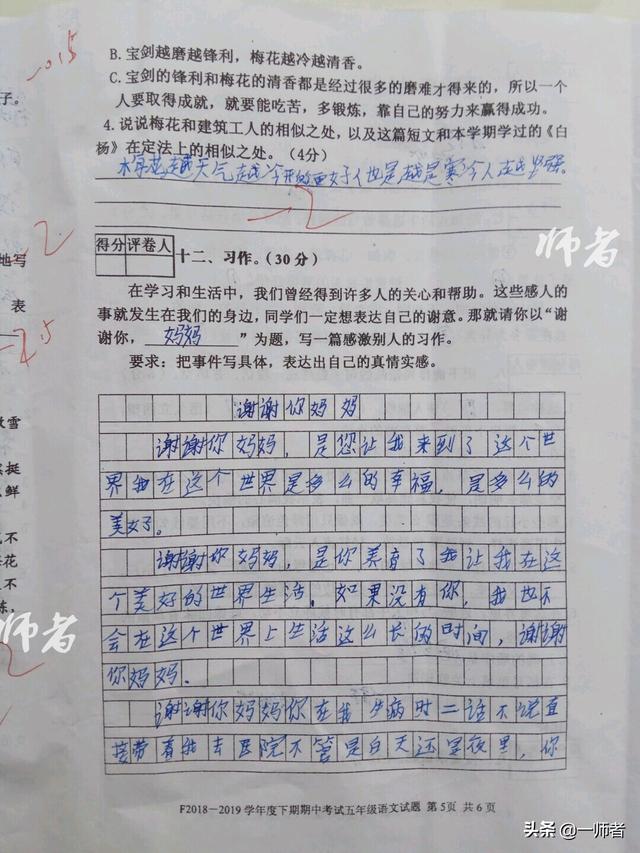 B. 宝剑越磨越锋利，梅花越冷越清香。
C. 宝剑的锋利和梅花的清香都是经过很多的磨难才得来的，所以一个
人要取得成就，就要能吃苦，多锻炼，靠自己的努力来赢得成功。
4. 说说梅花和建筑工人的相似之处，以及这篇短文和本学期学过的《白
杨》在定法上的相似之处。（4分）
天气越冷开的越好
—2
得分 评卷人
十二、习作。（30分）
在学习和生活中，我们曾经得到许多人的关心和帮助。这些感人的
事就发生在我们的身边，同学们一定想表达自己的谢意。那就请你以“谢
谢你，妈妈”为题，写一篇感激别人的习作。
要求：把事件写具体，表达出自己的真情实感。
谢谢你妈妈
谢谢你妈妈，是您让我来到了这个世
界我在这个世界是多么的幸福，是多么的
美好。
谢谢你妈妈，是你养育了我让我在这
个美好的世界生活，如果没有你，我也不
会在这个世界上生活这么长的时间，谢谢
你妈妈。
谢谢你妈妈你在我生病时二话不说直
接带着我去医院不管是白天还是夜里，你
F2018—2019学年度下期期中考试五年级语文试题 第5页 共6页
子。
—0.5
2
地写
表
—2.5
雪
挺
鲜
不
花
不
师者
师者
头条 @一师者